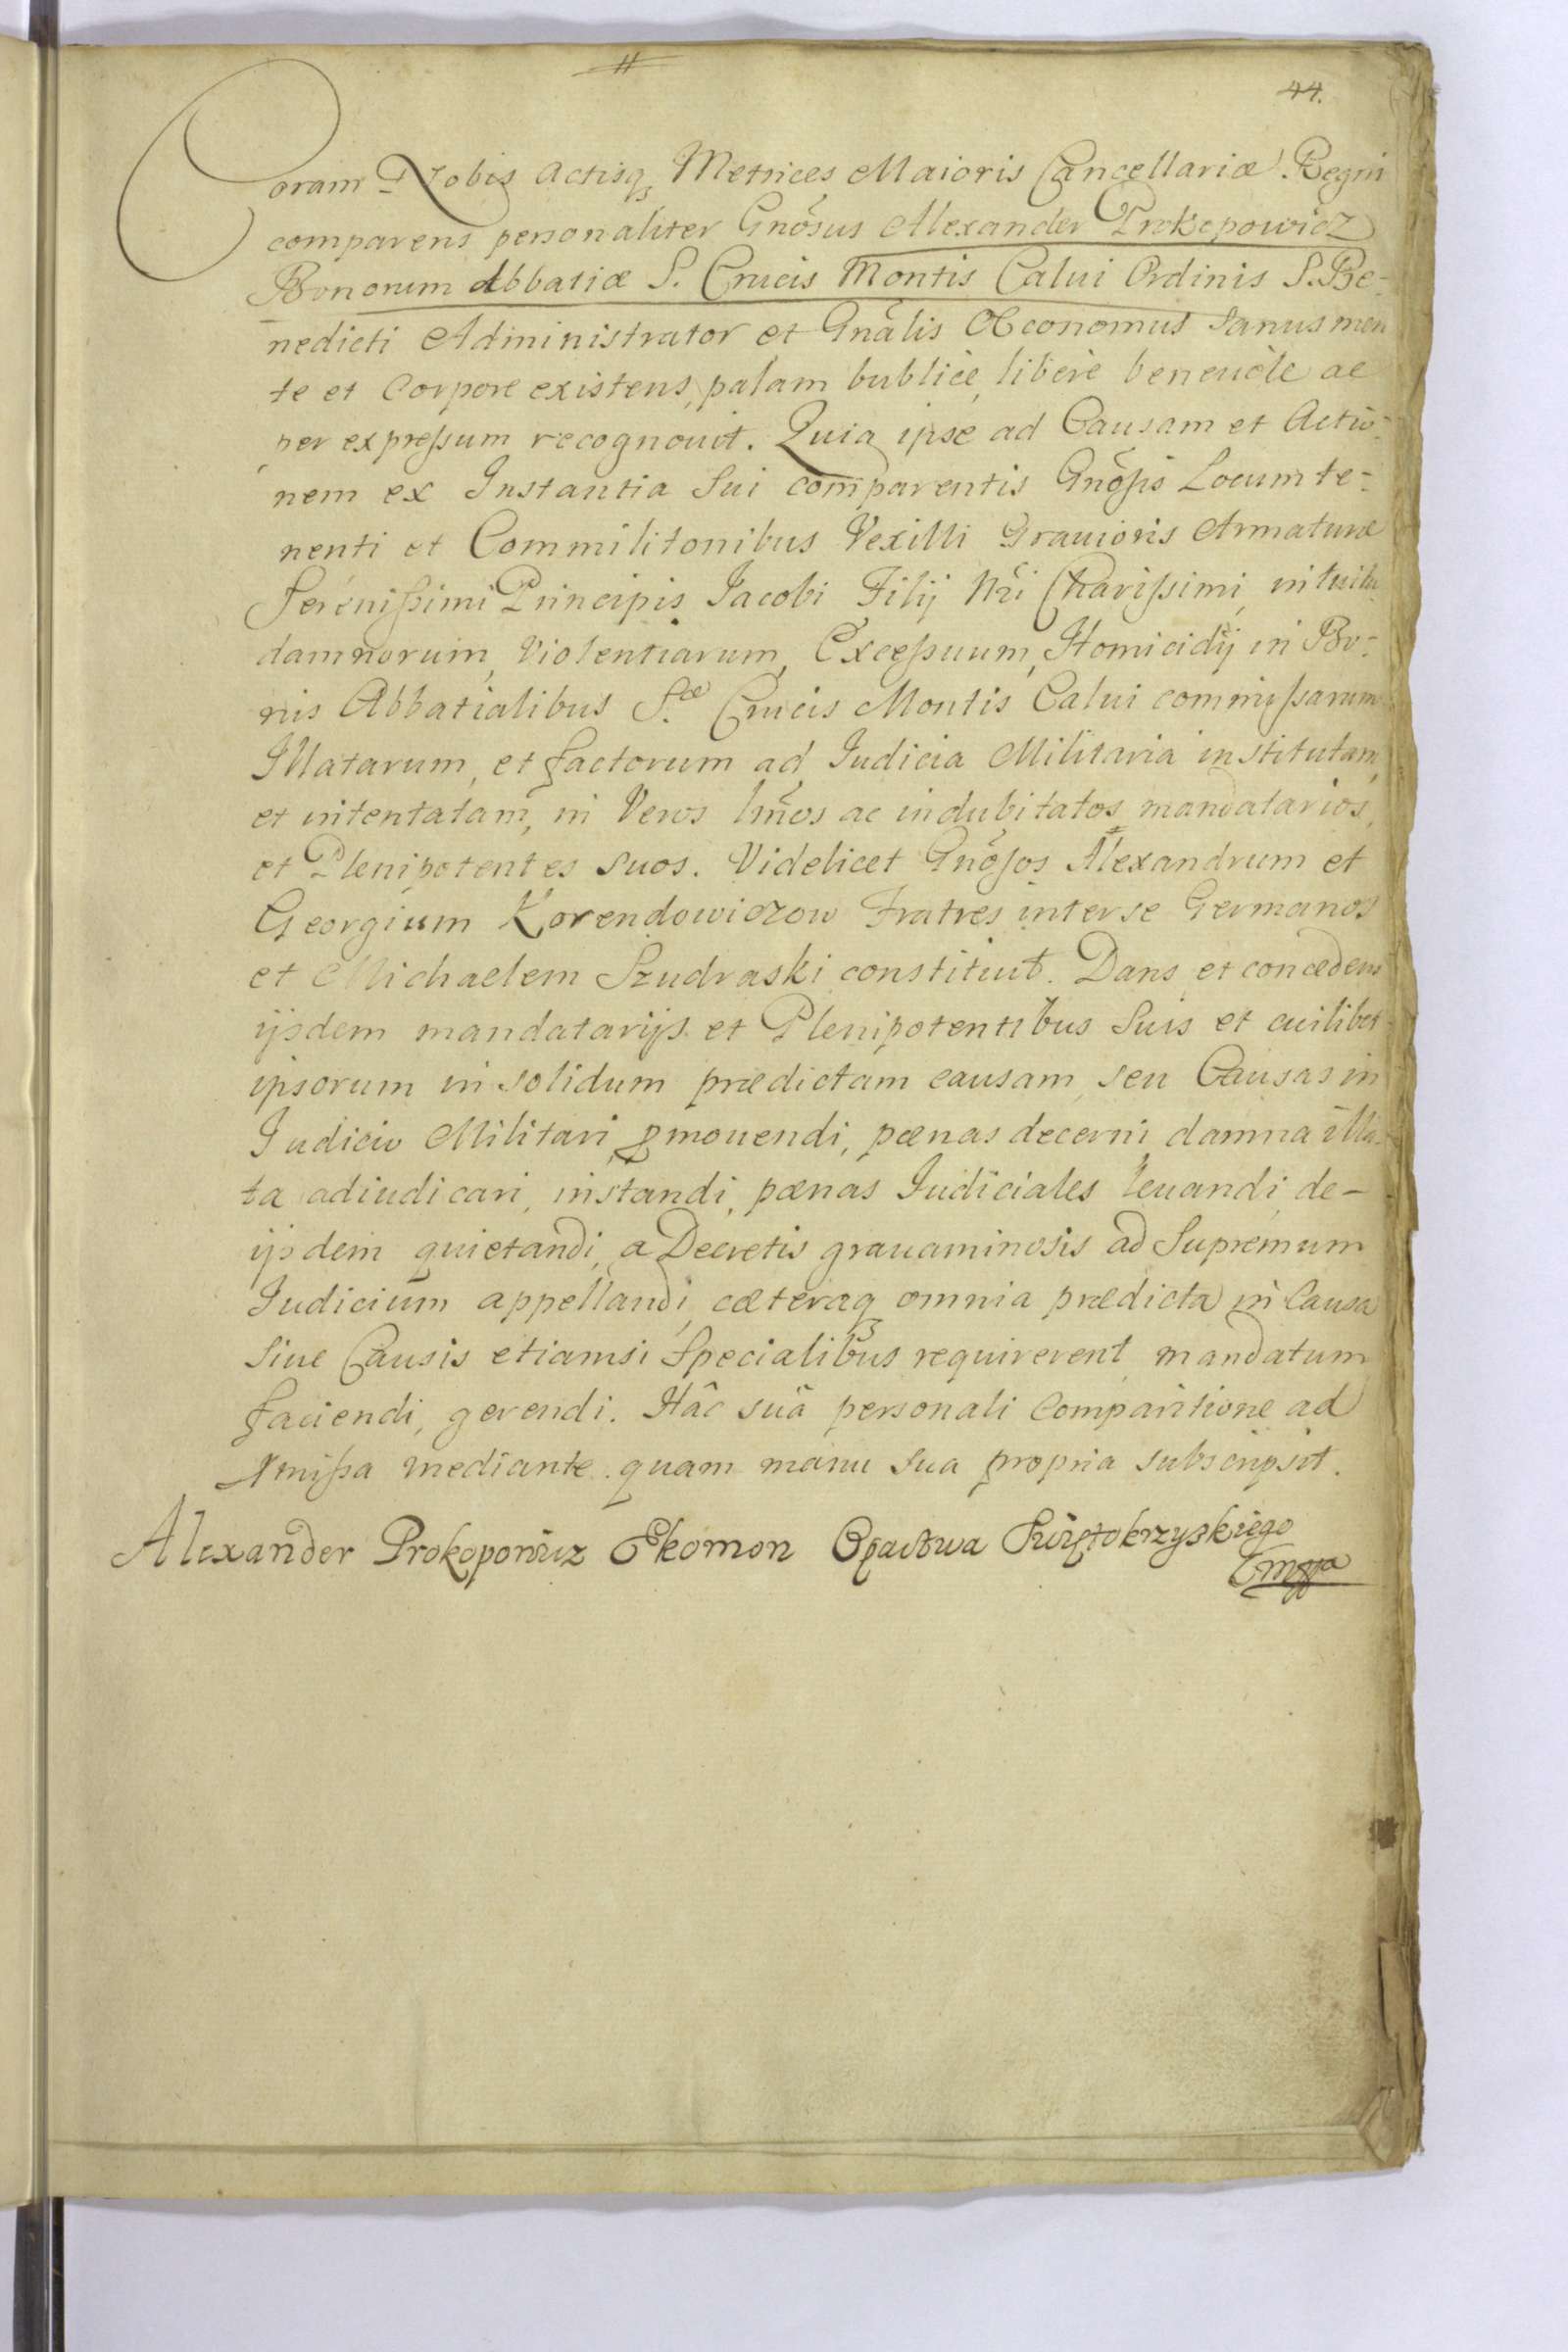 44.
Coram Nobis Actisq₃ Metrices Maioris Cancellariæ Regni
comparens personaliter Gnōsus Alexander Prokopowicz
Bonorum Abbatiæ S. Crucis Montis Calui Ordinis S. Be-
nedicti Administrator et Gnālis Oeconomus Sanus men
te et Corpore existens, palam bublicè, liberè beneuole ac
per expreſsum recognouit. Quia ipse ad Causam et Actio-
nem ex Instantia Sui comparentis Gnōſis Locumte-
nenti et Commilitonibus Vexilli Grauioris Armaturæ
Sereniſsimi Principis Iacobi Filij Nri Chariſsimi, intuitu
damnorum, Violentiarum, Exceſsuum, Homicidij in Bo-
nis Abbatialibus S.æ Crucis Montis Calui commiſsarum
Illatarum, et factorum ad Iudicia Militaria institutam,
et intentatam, in Veros lmōs ac indubitatos mandatarios,
et Plenipotentes suos. Videlicet Gnōſos Alexandrum et
Georgium Korendowiczow Fratres inter se Germanos
et Michaelem Szudraski constituit. Dans et concedens
ijsdem mandatarijs et Plenipotentibus Suis et cuilibet
ipsorum in solidum prædictam causam, seu Causas in
Iudicio Militari, ꝓmouendi, pœnas decerni, damna illa-
ta adiudicari, instandi, pœnas Iudiciales leuandi, de-
ijsdem quietandi, a Decretis grauaminosis ad Supremum
Iudicium appellandi, cæteraq₃ omnia prædicta in Causa
Siue Causis etiamsi Specialibus requirerent mandatum
faciendi, gerendi. Hâc suâ personali Comparitione ad
Ɐmiſsa mediante quam manu sua propria subscripsit.
Alexander Prokopowicz Ekomon Opactwa Swiętokrzyskiego
mppa